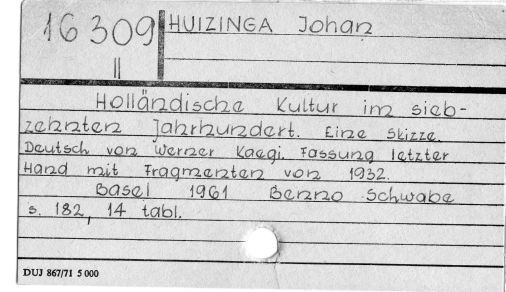 16 309
II
HUIZINGA Johan
Holländische Kultur im sieb-
zehnten Jahrhundert. Eine Skizze.
Deutsch von Werner Kaegi. Fassung letzter
Hand mit Fragmenten von 1932.
Basel 1961 Benno Schwabe
s. 182, 14 tabl.
DUJ 867/71 5 000